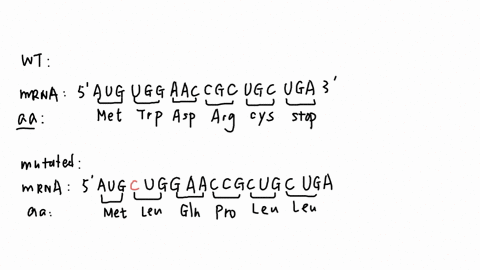 WT:
mRNA: 5' AUG UGG AAC CGC UGC UGA 3'
aa: Met Trp Asp Arg cys stop
mutated:
mRNA: 5' AUG CUGGAACCGCUGCUGA
aa: Met Leu Gln Pro Leu Leu